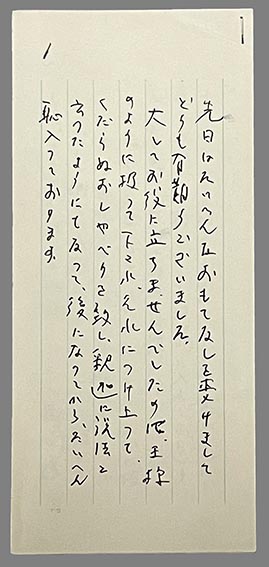 先日はたいへんなおもてなしを受けまして
どうも有難うございました。
大してお役に立ちませんでしたのに、王様
のように扱って下され、それにつけ上って、
くだらぬおしゃべりを致し、釈迦に説法と
云ったようにもなって、後になってから、たいへん
恥入っております。